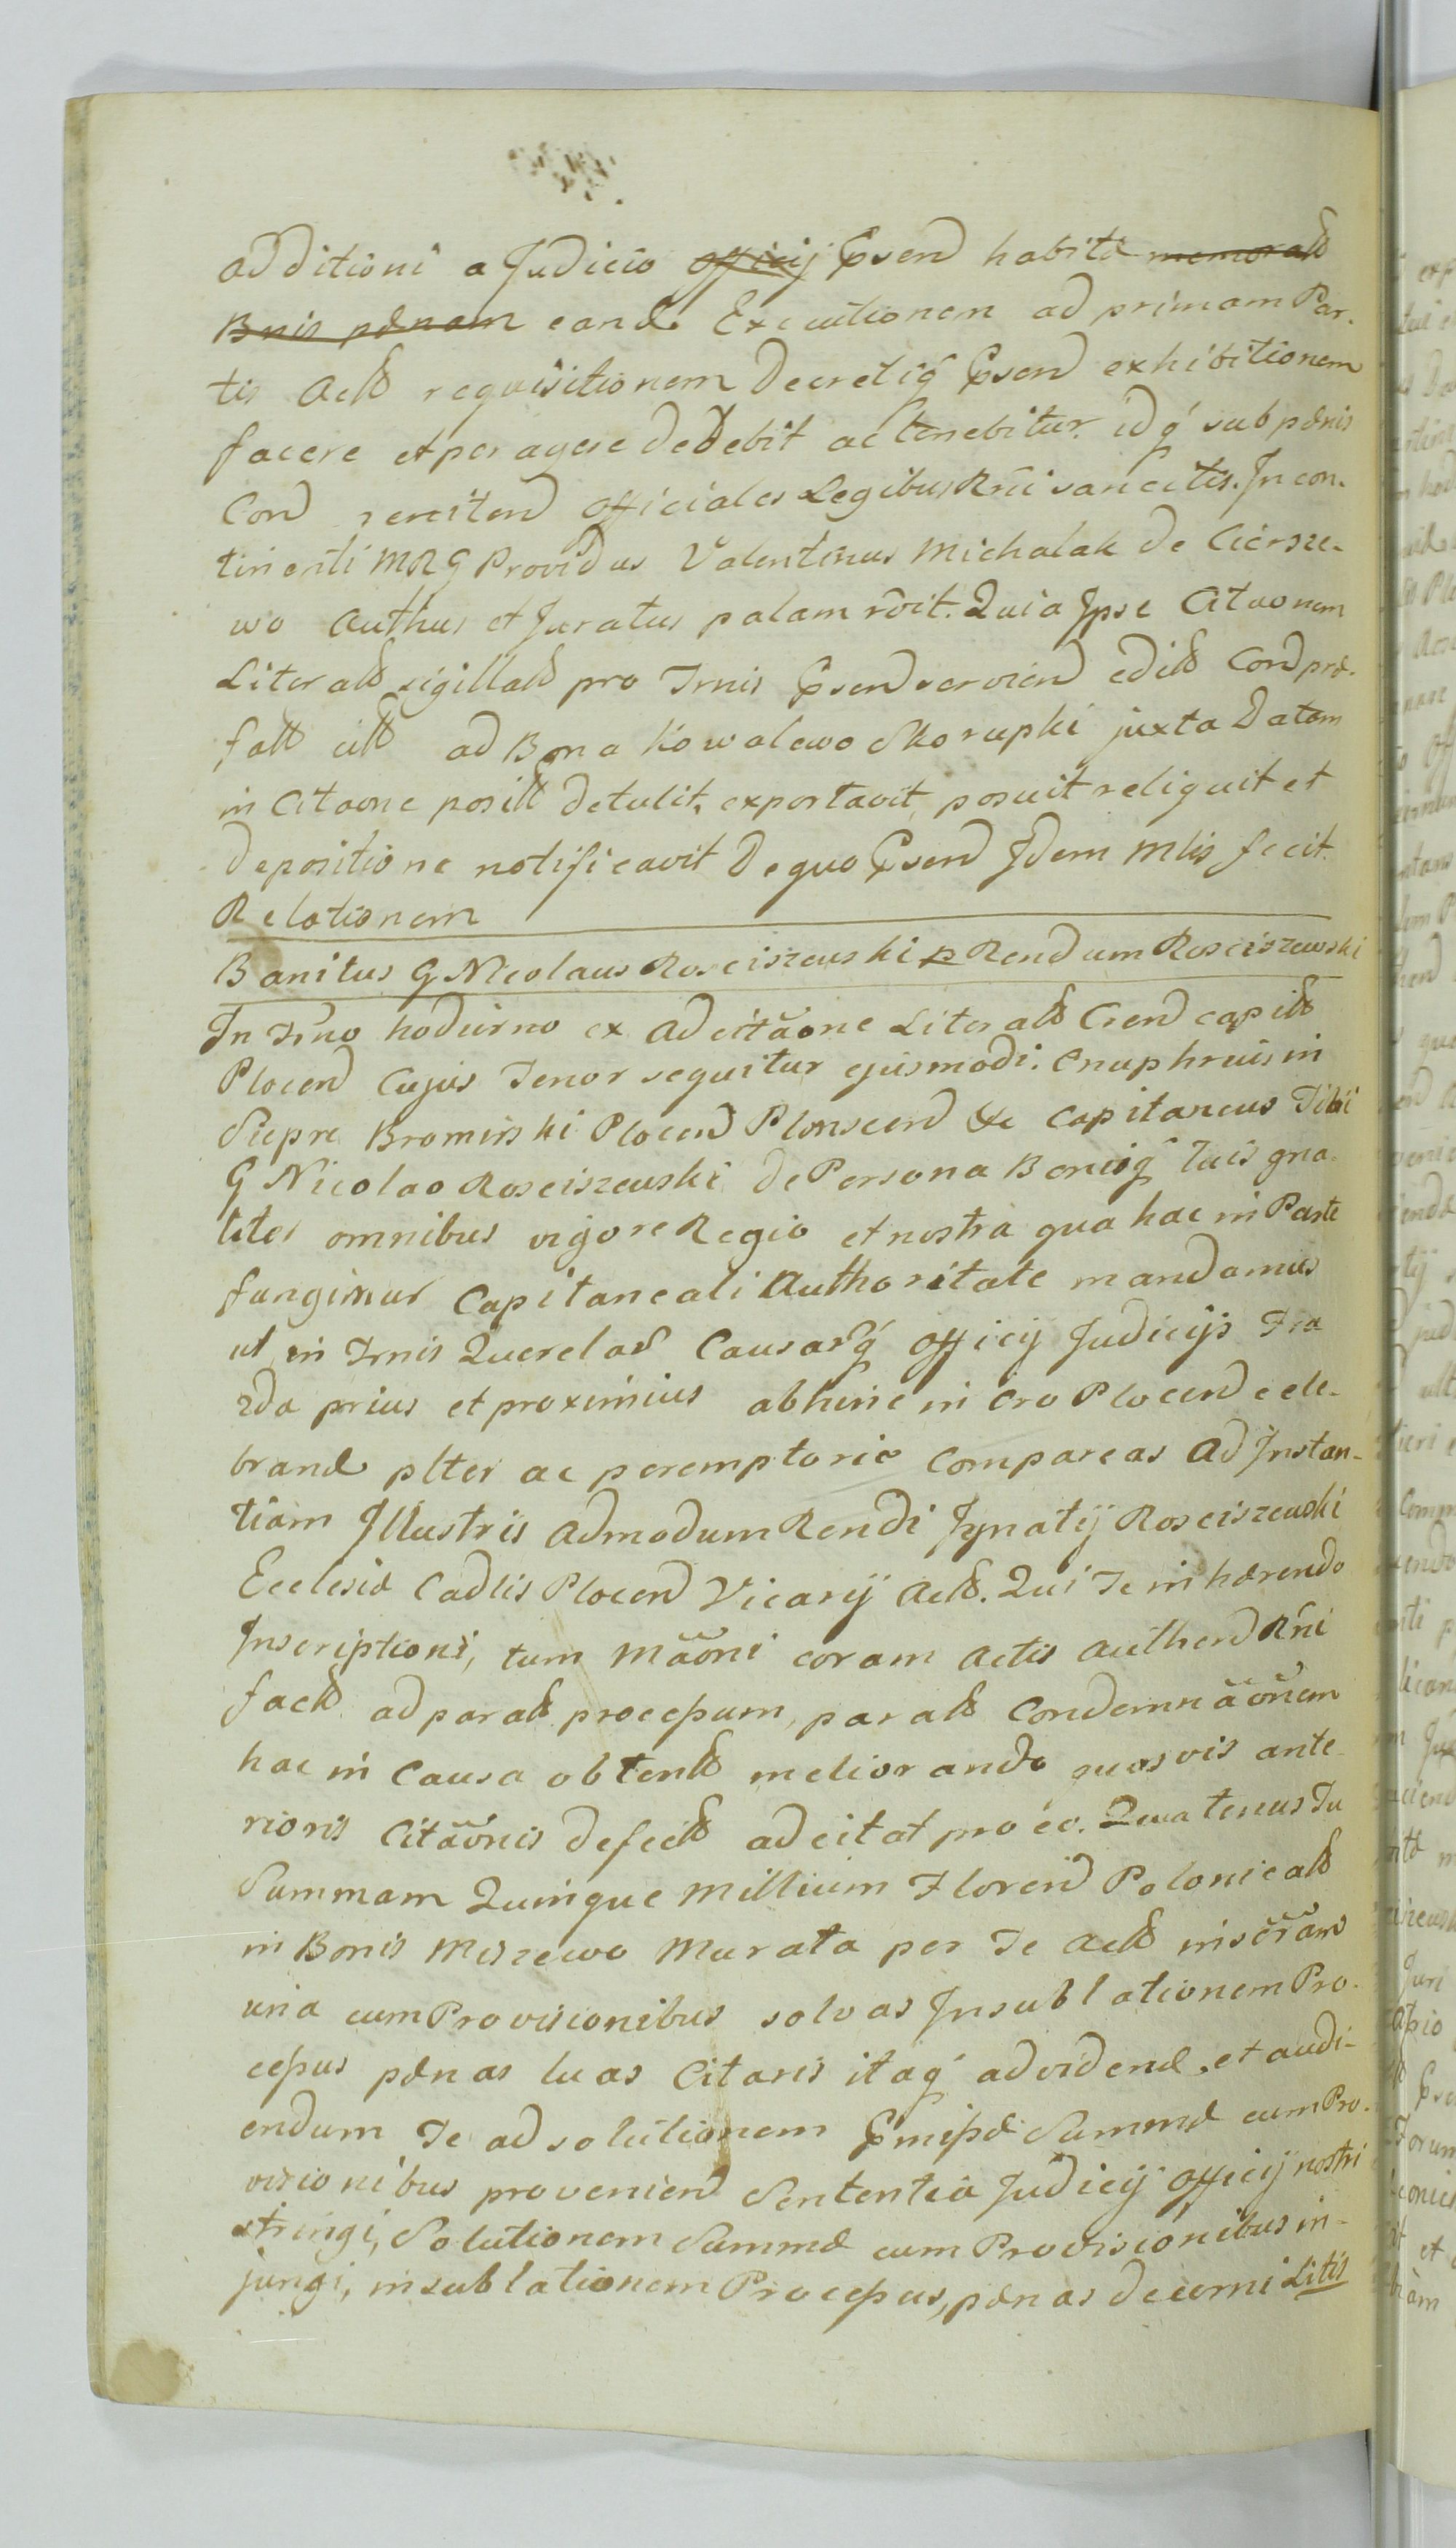 additioni a Judicio officij Pnsend habita memorattd
Bnis pænam eand. Executionem ad primam Par-
tis Acttd requisitionem Decretiq́ Pnsend exhibitionem
facere et peragere dedebit ac tenebitur. idq́ sub pænis
Cond renitend officiales Legibus Rñi sancitis. In con-
tinenti MRG Providus Valentinus Michalak de Ciersze-
wo Authus et Juratus palam rõit. Quia Ipse Citaonem
Literattd sigillattd pro Trnis Pnsend servien edittd Cond præ-
fatt citt ad Bona Kowalewo Skorupki juxta Datam
in Citaone positt detulit, exportavit, posuit reliquit et
depositione notificavit de quo Pnsend Idem Mlis fecit
Relationem
Banitus G Nicolaus Rosciszewski p Rendum Rosciszewski
In Trno hodierno ex Adcitãone Literattd Crend capittd
Plocend Cujus Tenor sequitur ejusmodi. Onuphrius in
Siepre Bromirski Plocend Plonscend &c Capitaneus Tibi
G Nicolao Rosciszewski de Persona Bonisq́ tuis gna-
liter omnibus vigore Regio et nostra qua hac in Parte
fungimur Capitaneali Authoritate mandamus
ut in Trnis Querelar Causarq́ officij Judicijs Fra
2da prius et proximius abhinc in Cro Plocend cele-
brand. plter ac peremptorie Compareas Ad Instan-
tiam Illustris Admodum Rendi Ignatij Rosciszewski
Ecclesiæ Cadlis Plocend Vicarij Acttd. Qui Te inhærendo
Inscriptioni, tum Mãoni coram Actis Authend Rñi
facttd ad parattd processum, parattd Condemnãonem
hac in Causa obtenttd meliorando quasvis ante-
rioris Citãonis defecttd adcitat pro eo. Quatenus Tu
Summam Quinque Millium Florend Polonicattd
in Bonis Miszewo Murata per Te Acttd inscram
una cum Provisionibus solvas Insublationem Pro-
cessus pænas luas Citaris itaq́ ad vidend. et audi-
endum Te ad solutionem Pmissæ Summæ cum Pro-
visionibus proveniend Sententia Judicij officij nostri
stringi, Solutionem Summæ cum Provisionibus in-
jungi, insublationem Processus, pænas decerni Litis